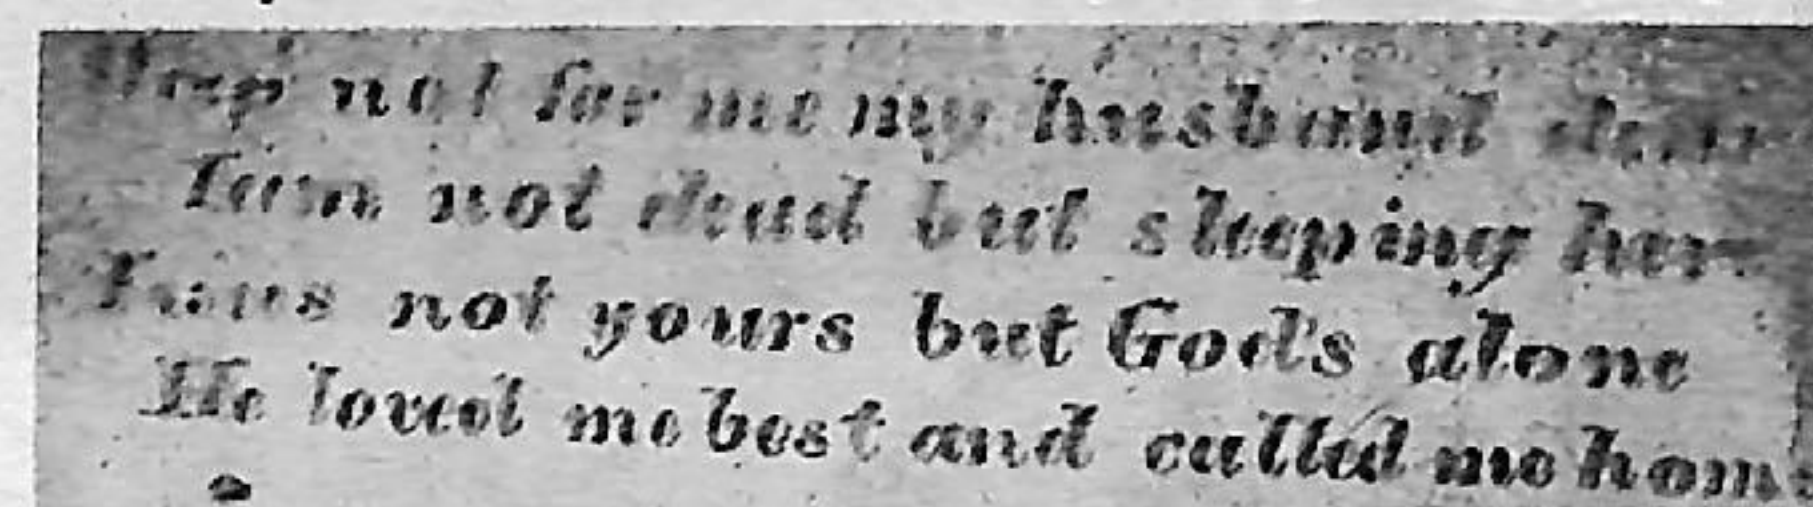 Weep not for me my husband dear
I am not dead but sleeping here
I was not yours but God's alone
He loved me best and called me home